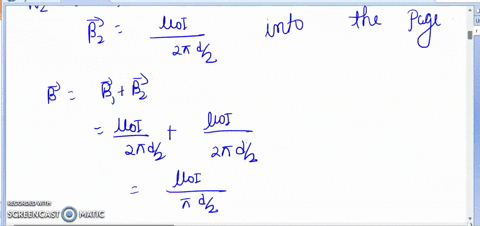 B⃗₂ = μ₀I / 2π d/2 into the Page
B⃗ = B⃗₁ + B⃗₂
= μ₀I / 2π d/2 + μ₀I / 2π d/2
= μ₀I / π d/2
RECORDED WITH
SCREENCAST MATIC